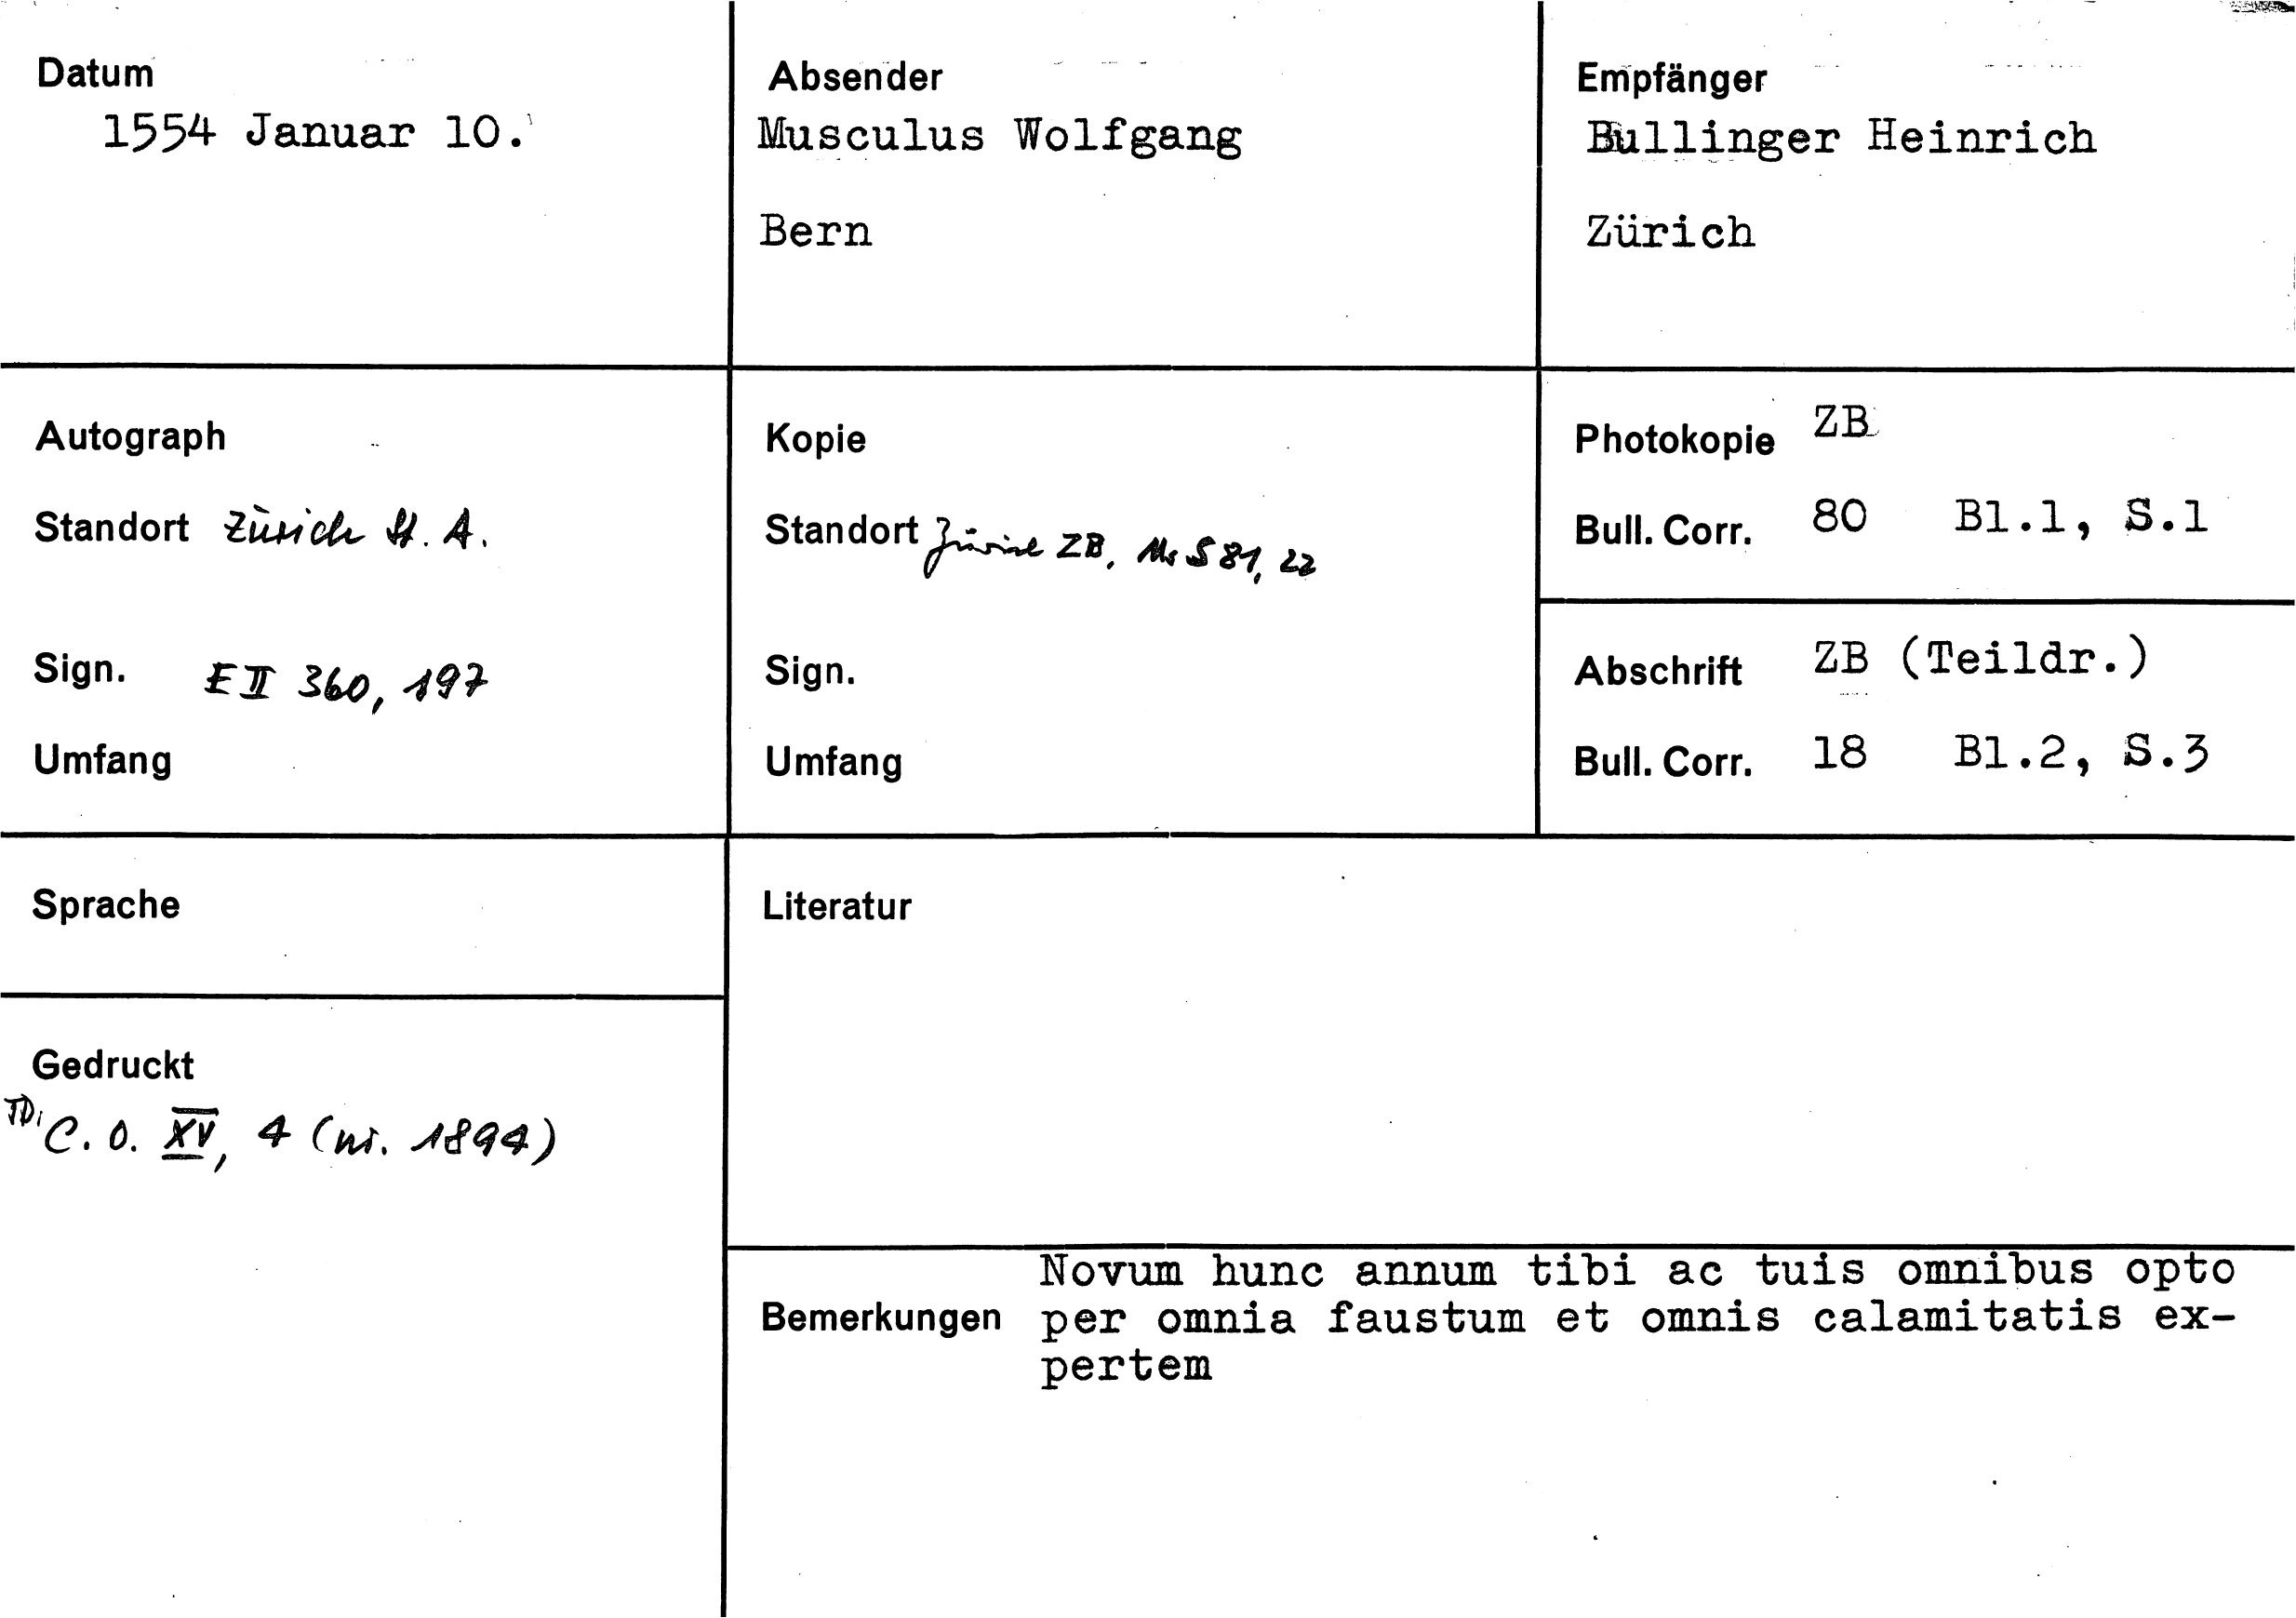 Datum
1554 Januar 10.
Absender
Musculus Wolfgang
Bern
Empfänger
Bullinger Heinrich
Zürich
Autograph
Standort Zürich St. A.
Sign. E II 360, 197
Umfang
Kopie
Standort Zürich ZB, Ms S 81, 22
Sign.
Umfang
Photokopie ZB
Bull. Corr. 80 Bl.1, S.1
Abschrift ZB (Teildr.)
Bull. Corr. 18 Bl.2, S.3
Sprache
Literatur
Gedruckt
TD: C. O. XV, 4 (nr. 1894)
Bemerkungen
Novum hunc annum tibi ac tuis omnibus opto
per omnia faustum et omnis calamitatis ex-
pertem